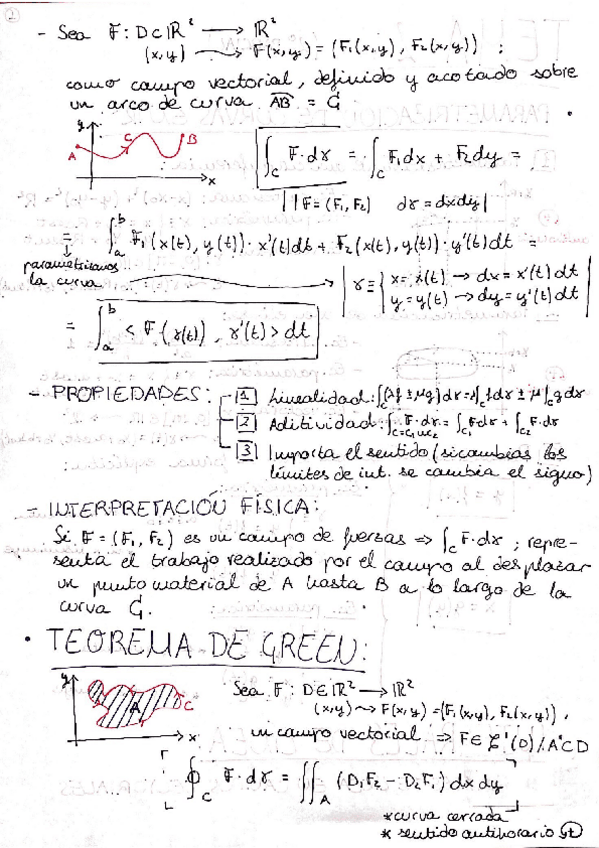 2
- Sea F: D⊂ℝ² → ℝ²
(x,y) → F(x,y) = (F₁(x,y), F₂(x,y)) ;
como campo vectorial, definido y acotado sobre
un arco de curva AB = C
y A C B x
∫_C F·dr = ∫_C F₁dx + F₂dy =
| | F = (F₁, F₂) dr = dxdy |
= ∫_a^b F₁(x(t), y(t))·x'(t)dt + F₂(x(t), y(t))·y'(t)dt =
parametrizamos
la curva
γ ≡ { x = x(t) → dx = x'(t)dt
y = y(t) → dy = y'(t)dt
= ∫_a^b < F(γ(t)), γ'(t) > dt
- PROPIEDADES: 1 Linealidad: ∫_C(λf ± μg)dr = λ∫_C f dr ± μ∫_C g dr
2 Aditividad: ∫_{C=C₁∪C₂} F·dr = ∫_{C₁} F·dr + ∫_{C₂} F·dr
3 Importa el sentido (si cambias los
límites de int. se cambia el signo)
- INTERPRETACIÓN FÍSICA:
Si F = (F₁, F₂) es un campo de fuersas ⇒ ∫_C F·dr ; repre-
senta el trabajo realizado por el campo al desplazar
un punto material de A hasta B a lo largo de la
curva C.
• TEOREMA DE GREEN:
y A C x
Sea F: D∈ℝ² → ℝ²
(x,y) → F(x,y) = (F₁(x,y), F₂(x,y)),
un campo vectorial ⇒ F∈ C¹(D) / A⊂D
∮_C F·dr = ∬_A (D₁F₂ - D₂F₁) dx dy
* curva cerrada
* sentido antihorario